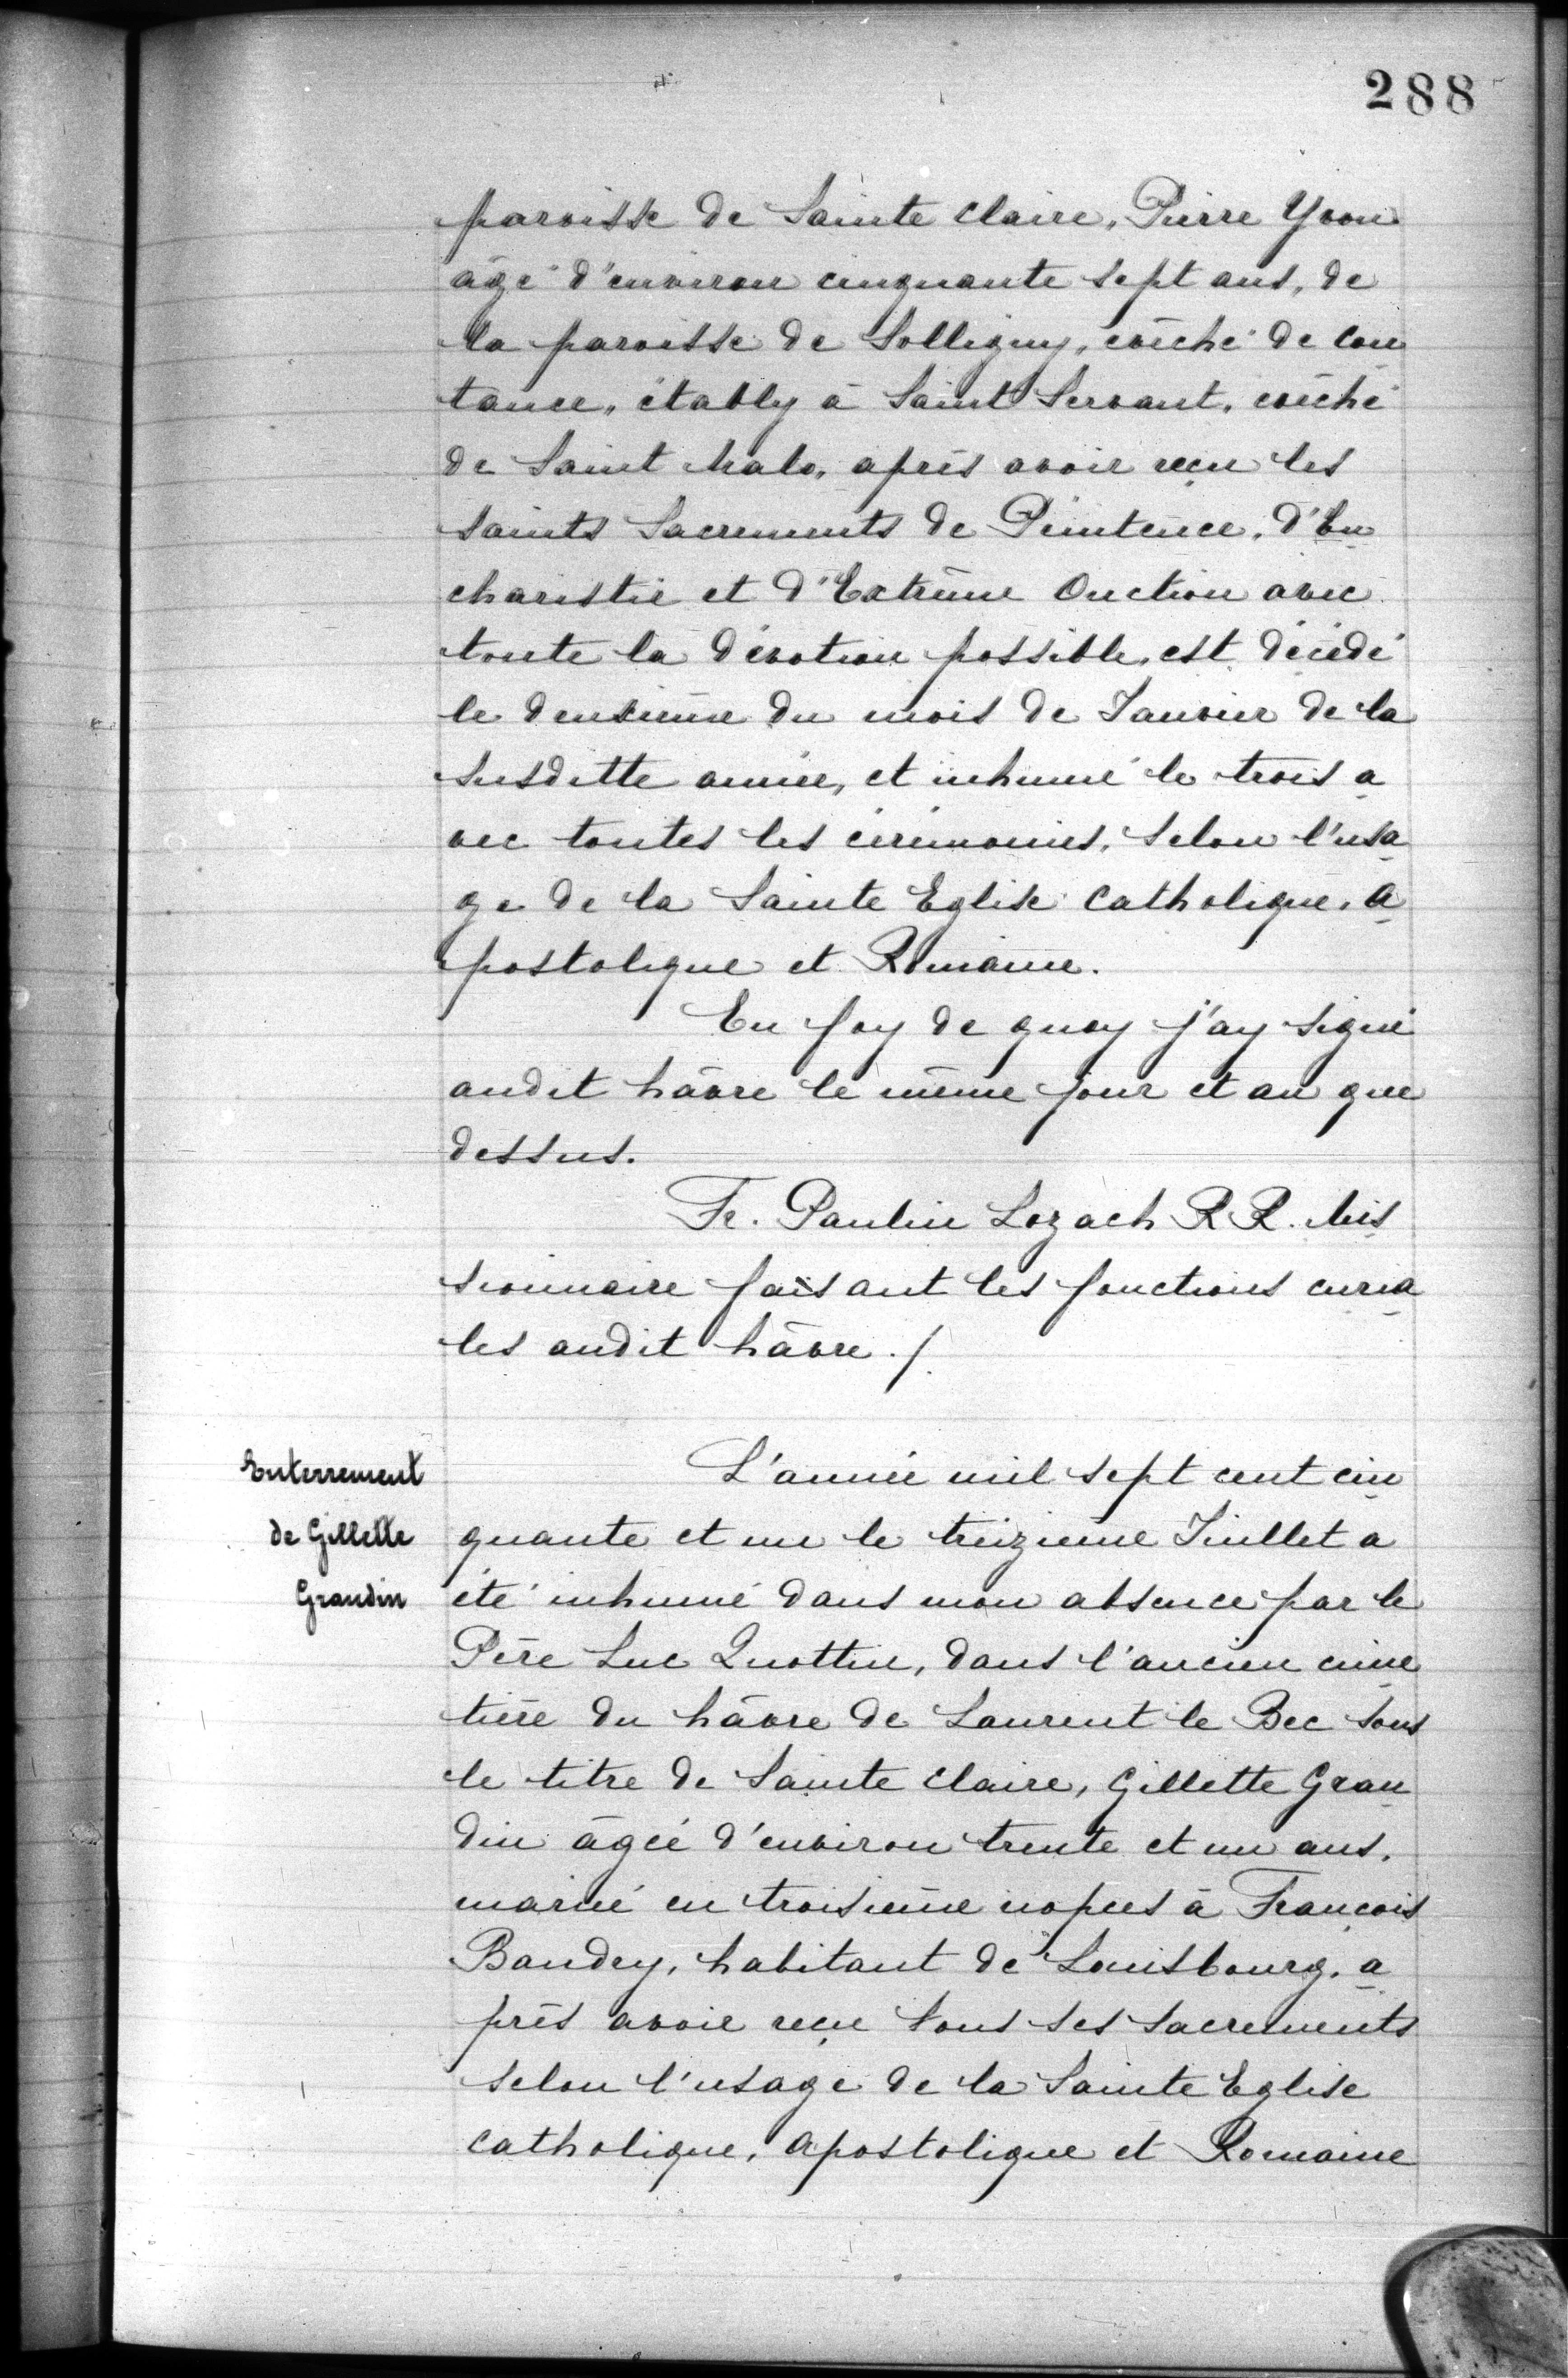 288
paroisse de Sainte Claire, Pierre Yvon
âgé d'environ cinquante sept ans, de
la paroisse de Solligny, évêché de Cou
tance, étably à Saint Servant, évêché
de Saint Malo, après avoir reçu les
saints Sacrements de Peintence, d'Eu
charistie et d'Extrême Onction avec
toute la dévotion possible, est décédé
le deuxième du mois de Janvier de la
susditte année, et inhumé le trois a
vec toutes les cérémonies, selon l'usa
ge de la Sainte Eglise Catholique, A
postolique et Romaine.
En foy de quoy j'ay signé
audit hâvre le même jour et an que
dessus.
Fr. Paulin Lozach R R. Mis
sionnaire faisant les fonctions curia
les audit hâvre ./.
Enterrement
de Gillette
Grandin
L'année mil sept cent cin
quante et un le treizième Juillet a
été inhumé dans mon absence par le
Père Luc Quottin, dans l'ancien cime
tière du hâvre de Laurent le Bec sous
le titre de Sainte Claire, Gillette Gran
din âgée d'environ trente et un ans,
marié en troisième nopces à François
Baudry, habitant de Louisbourg, a
près avoir reçu tous ses sacrements
selon l'usage de la Sainte Eglise
Catholique, Apostolique et Romaine